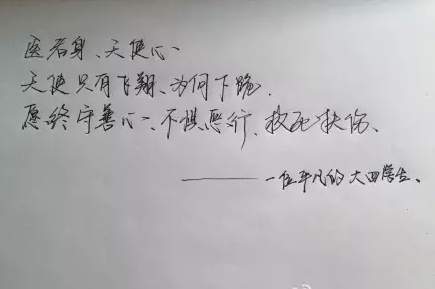 医者身、天使心、
天使只有飞翔、为何下跪.
愿终守善心、不惧恶行、救死扶伤、
——一位平凡的大四学生、